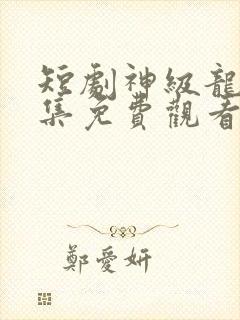 短劇神級龍
集免費觀看
鄭愛妍